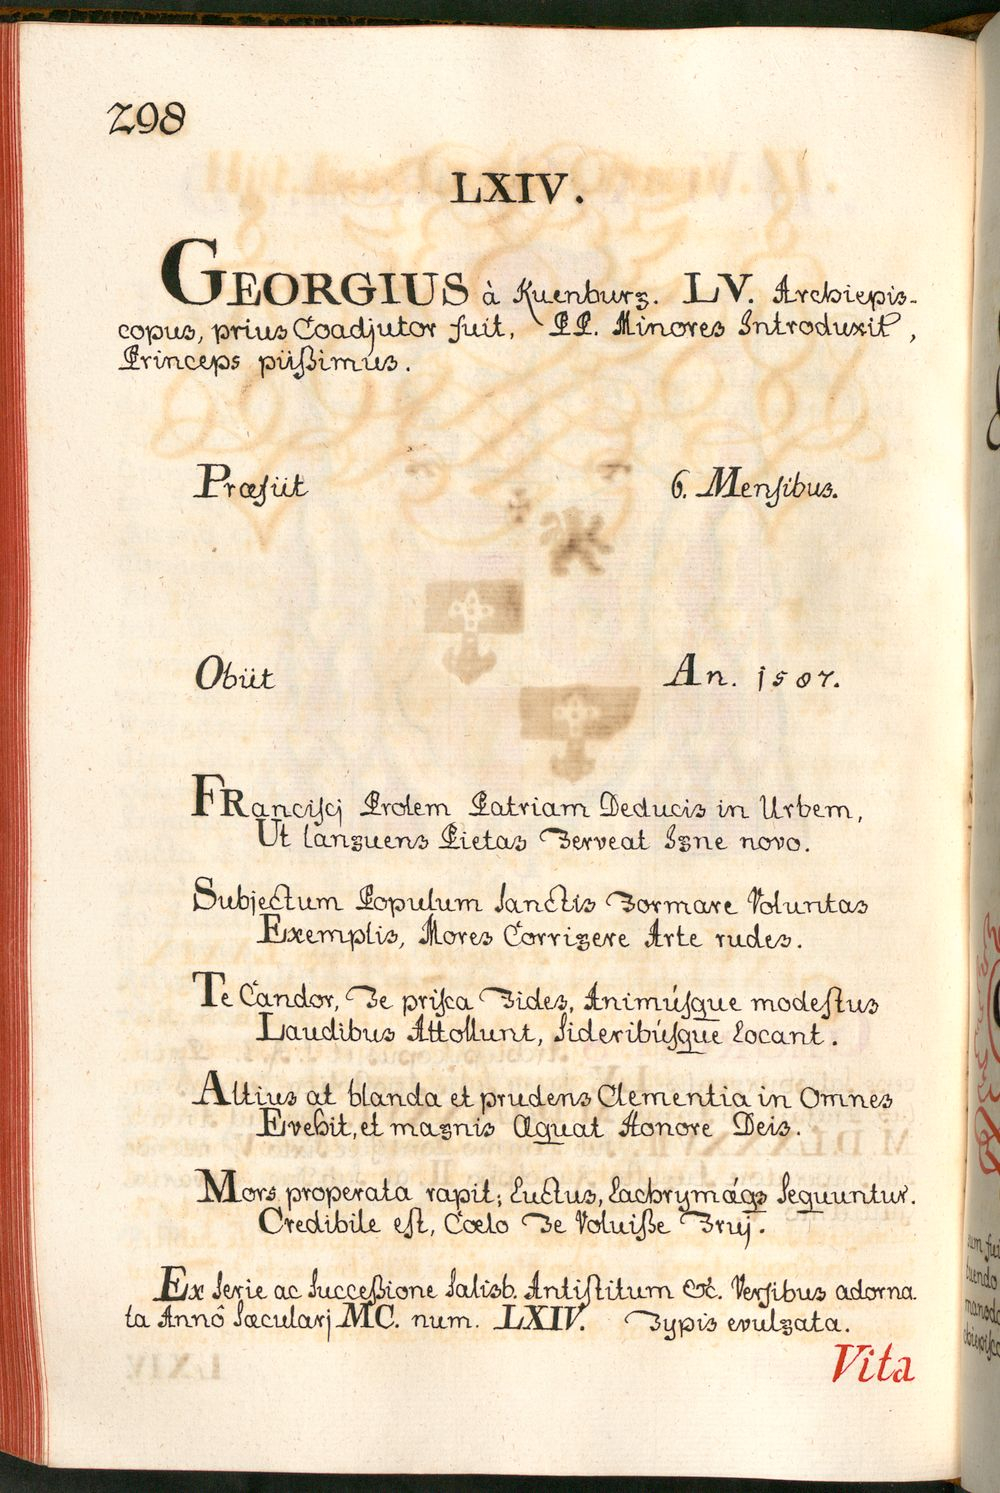 298
LXIV.
GEORGIUS à Kuenburg. LV. Archiepis-
copus, prius Coadjutor fuit, PP. Minores Introduxit,
Princeps piißimus.
Præfüit 6. Mensibus.
Obüt An. 1587.
FRancisci Prolem Patriam Deducis in Urbem,
Ut languens Pietas Ferveat Igne novo.
Subjectum Populum Sanctis Formare Voluntas
Exemplis, Mores Corrigere Arte rudes.
Te Candor, Te prisca Fides, Animúsque modestus
Laudibus Attollunt, Sideribúsque Locant.
Altius at blanda et prudens Clementia in Omnes
Evehit, et magnis Æquat Honore Deis.
Mors properata rapit; Luctus, Lachrymáq3 Sequuntur.
Credibile est, Cœlo Te Voluiße Fruj.
Ex Serie ac Succeßione Salisb. Antistitum &c. Versibus adorna
ta Annô Sæcularj MC. num. LXIV. Typis evulgata.
Vita